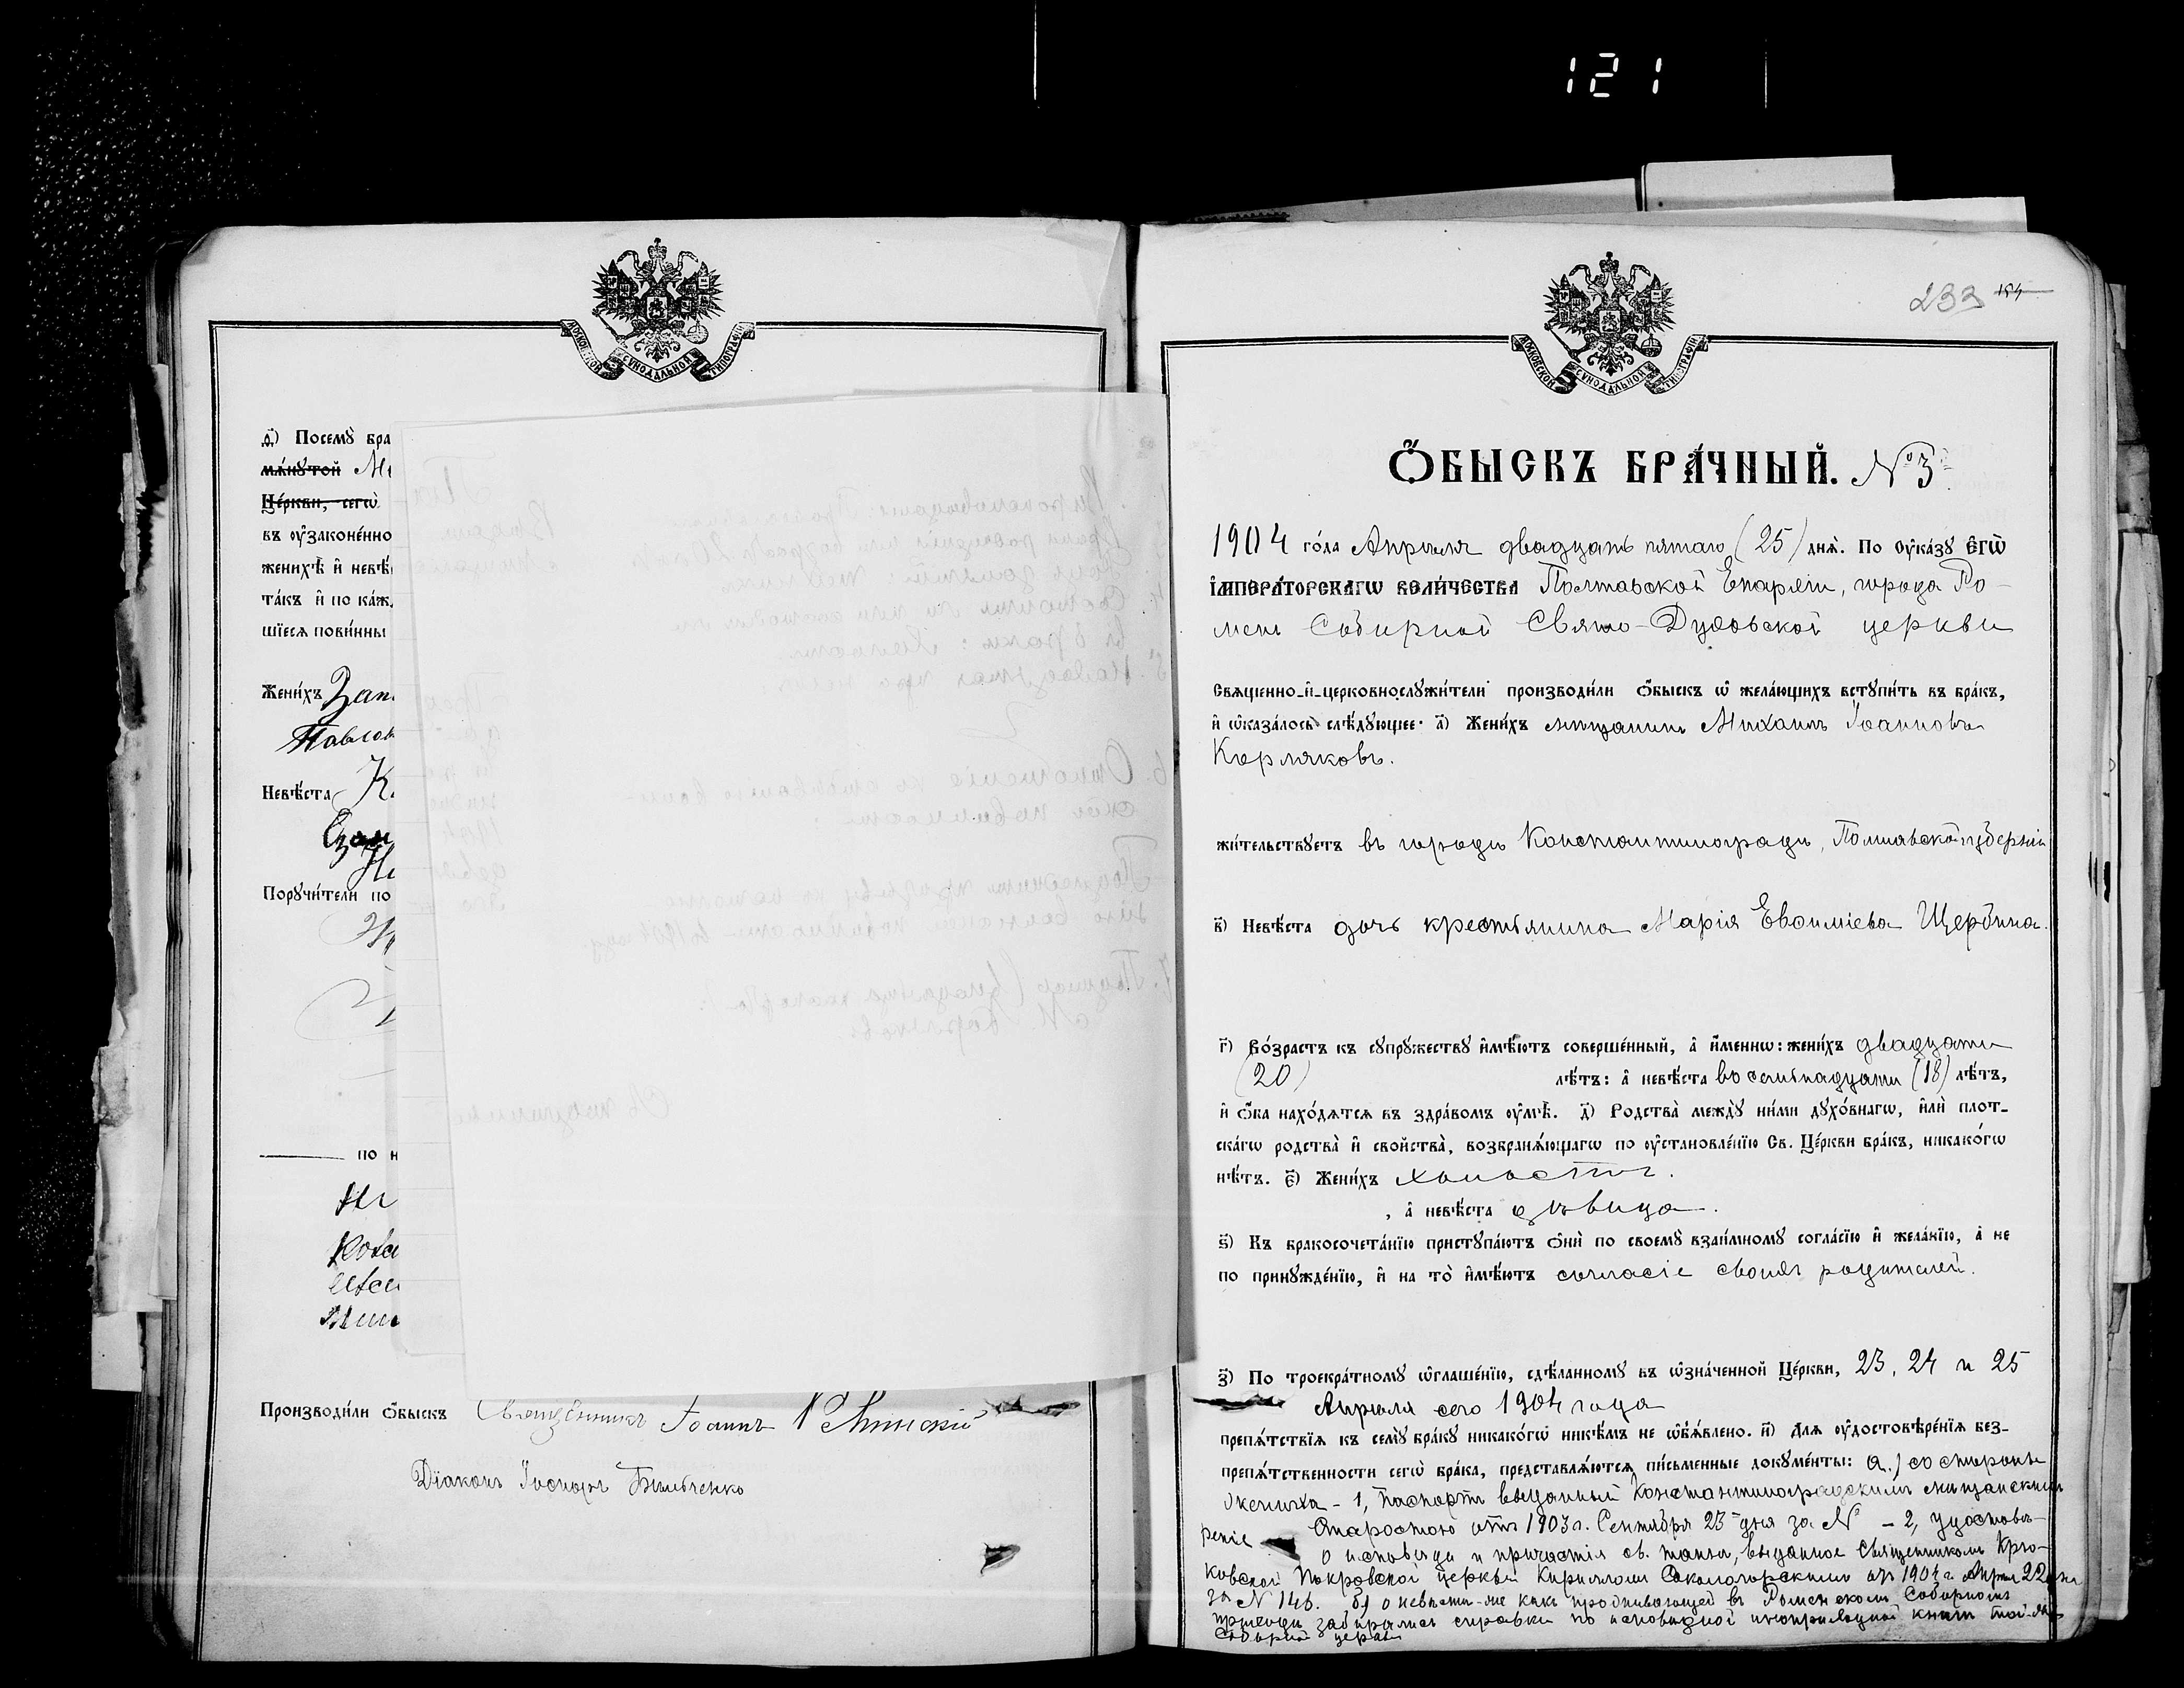 121
МОСКОВСКОЙ СУНОДАЛЬНОЙ ТИПОГРАФІИ
д҃) Посемꙋ̀ бра
мѧ́нꙋтой
Це́ркви, сегѡ̀
въ оу҆законе́нно
женихѣ̀ и҆ невѣ́
та́къ и҆ по ка́ж
шїесѧ пови́нны
Жени́хъ Зап
Павлов
Невѣ́ста
Порꙋчи́тели по
по н
Производи́ли ѻ҆́быскъ Священникъ Іоаннъ
Дїаконъ Іосифъ
233 154
МОСКОВСКОЙ СУНОДАЛЬНОЙ ТИПОГРАФІИ
Ѻ҆́БЫСКЪ БРА́ЧНЫЙ. № 3
1904 го́да Апрѣля двадцать пятаго (25) днѧ̀. По оу҆ка́зꙋ Є҆ГѠ̀
І҆МПЕРА́ТОРСКАГѠ ВЕЛИ́ЧЕСТВА Полтавской Епархіи, города Ро-
менъ Соборной Свято-Духовской церкви
Свѧще́нно-и҆-церковнослꙋжи́тели производи́ли ѻ҆́быскъ ѡ҆ жела́ющихъ встꙋпи́ть въ бра́къ,
и҆ ѡ҆каза́лось слѣ́дꙋющее: а҃) Жени́хъ мѣщанинъ Михаилъ Іоанновъ
Корляковъ.
жи́тельствꙋетъ въ городѣ Константиноградѣ, Полтавской губерніи
в҃) Невѣ́ста дочь крестьянина Марія Евѳиміева Щербина.
г҃) Во́зрастъ къ сꙋпрꙋжествꙋ и҆мѣ́ютъ соверше́нный, а҆ и҆́менно: жени́хъ двадцати
(20) лѣ́тъ: а҆ невѣ́ста восемнадцати (18) лѣ́тъ,
и҆ ѻ҆́ба нахо́дѧтсѧ въ здра́вомъ оу҆мѣ̀. д҃) Родства̀ междꙋ̀ ни́ми дꙋхо́внагѡ, и҆лѝ плот-
скагѡ родства̀ и҆ свойства̀, возбранѧ́ющагѡ по оу҆становле́нїю Св. Це́ркви бра́къ, никако́гѡ
нѣ́тъ. є҃) Жени́хъ холостъ.
, а҆ невѣ́ста дѣвица.
ѕ҃) Къ бракосочета́нїю пристꙋпа́ютъ ѻ҆нѝ по своемꙋ̀ взаи́мномꙋ согла́сїю и҆ жела́нїю, а҆ не
по принꙋжде́нїю, и҆ на то̀ и҆мѣ́ютъ согласіе своихъ родителей.
з҃) По троекра́тномꙋ ѡ҆глаше́нїю, сдѣ́ланномꙋ въ ѡ҆зна́ченной Це́ркви, 23, 24 и 25
Апрѣля сего 1904 года
препѧ́тствїѧ къ семꙋ̀ бра́кꙋ никако́гѡ никѣ́мъ не ѡ҆б̾ѧ́влено. и҃) Длѧ оу҆достовѣре́нїѧ без-
препѧ́тственности сегѡ̀ бра́ка, представлѧ́ютсѧ пи́сьменные докꙋме́нты: а.) со стороны
жениха - 1, паспортъ выданный Константиноградскимъ мѣщанскимъ
Старостою отъ 1903 г. Сентября 23 дня за № - 2, удостовѣ-
реніе о исповѣди и причастіи св. таинъ, выданное Священникомъ Крю-
ковской Покровской церкви Кирилломъ отъ 1904 г. Апрѣля 22 дня
за № 146. б) о невѣстѣ-же какъ проживающей въ Роменскомъ Соборномъ
приходѣ забирались справки по исповѣдной книгѣ той-же
Соборной церкви